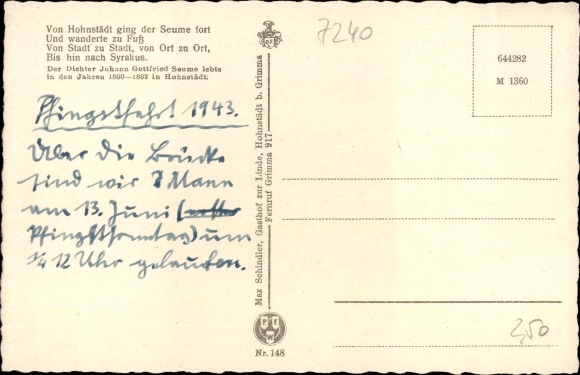 Von Hohnstädt ging der Seume fort
Und wanderte zu Fuß
Von Stadt zu Stadt, von Ort zu Ort,
Bis hin nach Syrakus.
Der Dichter Johann Gottfried Seume lebte
in den Jahren 1800—1802 in Hohnstädt.
Pfingstfahrt 1943.
Über die Brücke
sind wir 7 Mann
am 13. Juni (erster
Pfingstsonntag) um
3/4 12 Uhr gelaufen.
Max Schindler, Gasthof zur Linde, Hohnstädt b. Grimma
Fernruf Grimma 917
Nr. 148
7240
644282
M 1360
2,50